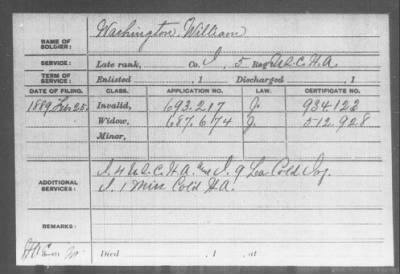 NAME OF SOLDIER: Washington, William
SERVICE: Late rank, Co. I, 5 Reg't U.S.C.H.A.
TERM OF SERVICE: Enlisted , 1 Discharged , 1
DATE OF FILING. CLASS. APPLICATION NO. LAW. CERTIFICATE NO.
1889 Invalid, 693.217 J. 934122
Widow, 687.674 J. 512.928
Minor,
ADDITIONAL SERVICES: I. 4 U.S.C.H.A. and I. 9 La Cold Inf.
I. 1 Miss Cold H.A.
REMARKS:
Died , 1 , at